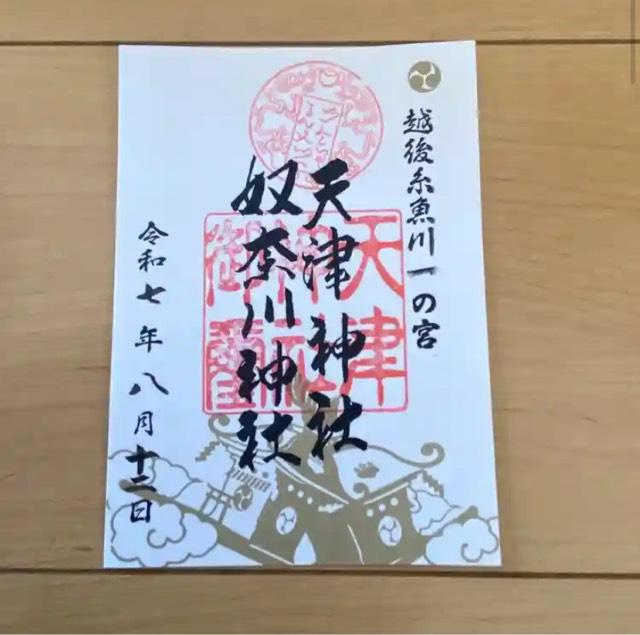 越後糸魚川一の宮
天津神社
奴奈川神社
令和七年八月十二日
天津
神社